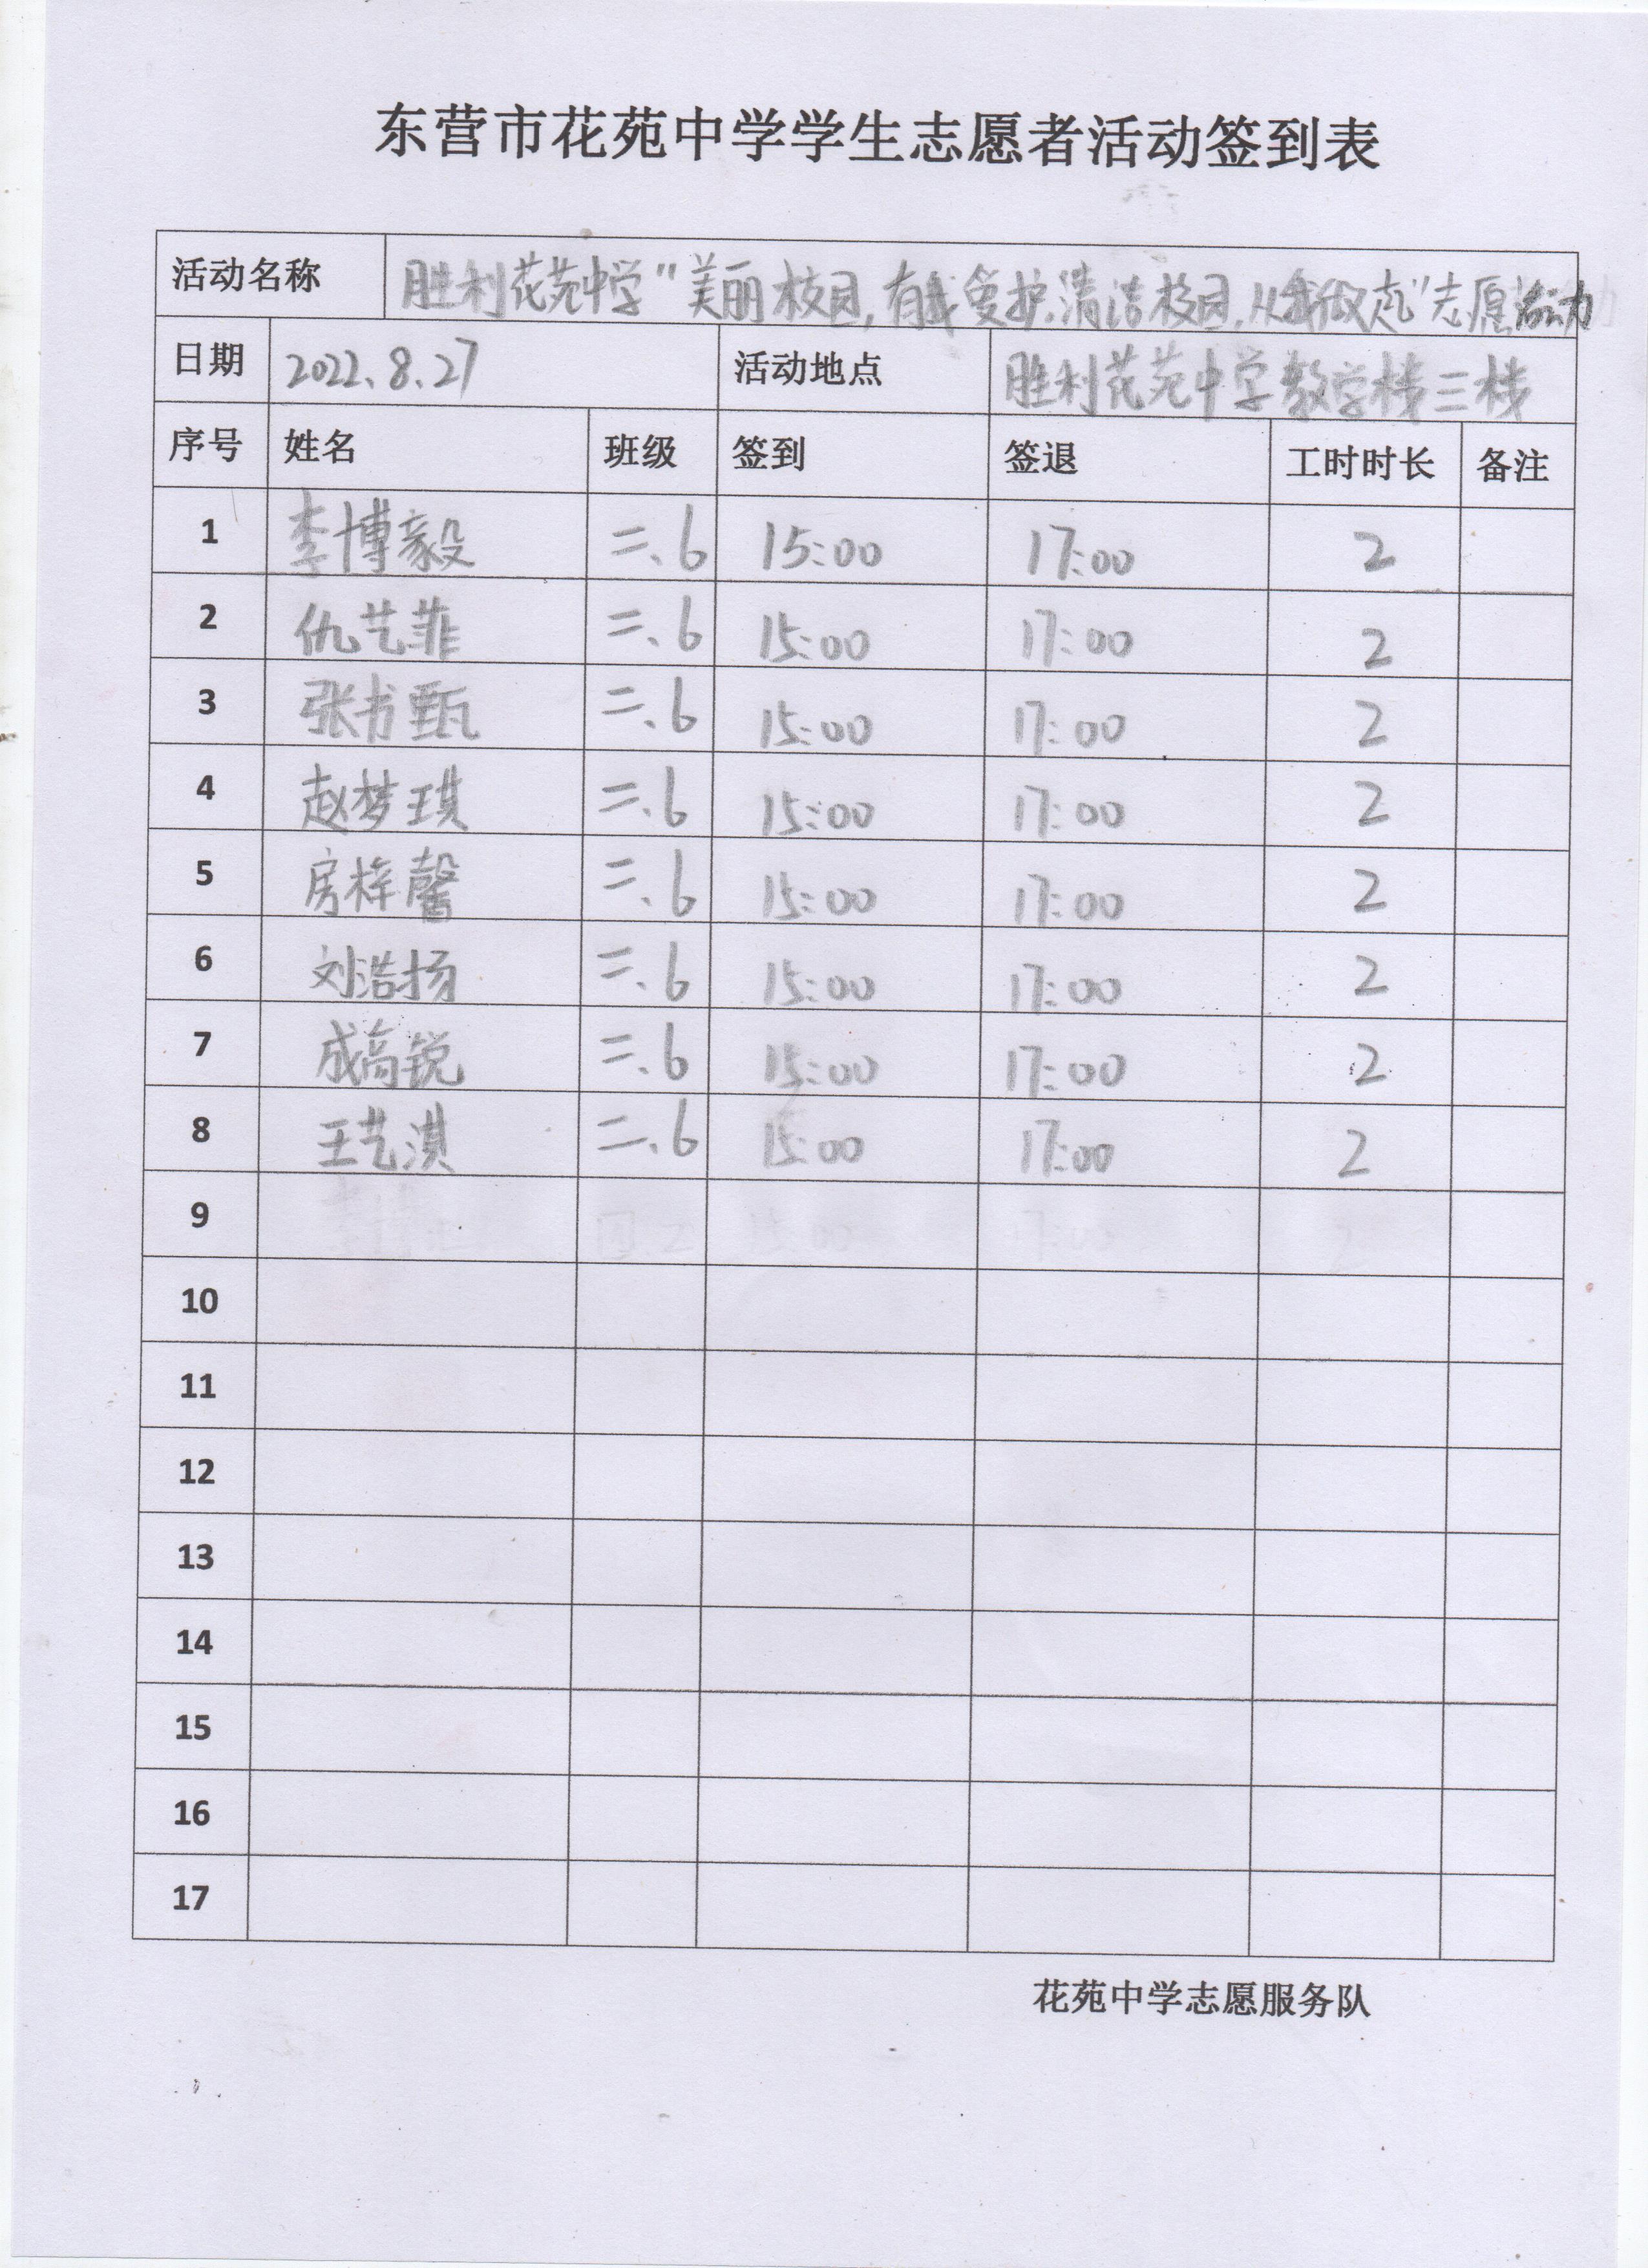 东营市花苑中学学生志愿者活动签到表
活动名称 胜利花苑中学"美丽校园,有我爱护.清洁校园.从我做起"志愿活动
日期 2022.8.27 活动地点 胜利花苑中学教学楼三楼
序号 姓名 班级 签到 签退 工时时长 备注
1 李博毅 二.6 15:00 17:00 2
2 仇艺菲 二.6 15:00 17:00 2
3 张书甄 二.6 15:00 17:00 2
4 赵梦琪 二.6 15:00 17:00 2
5 房梓馨 二.6 15:00 17:00 2
6 刘浩扬 二.6 15:00 17:00 2
7 成高锐 二.6 15:00 17:00 2
8 王艺淇 二.6 15:00 17:00 2
9
10
11
12
13
14
15
16
17
花苑中学志愿服务队